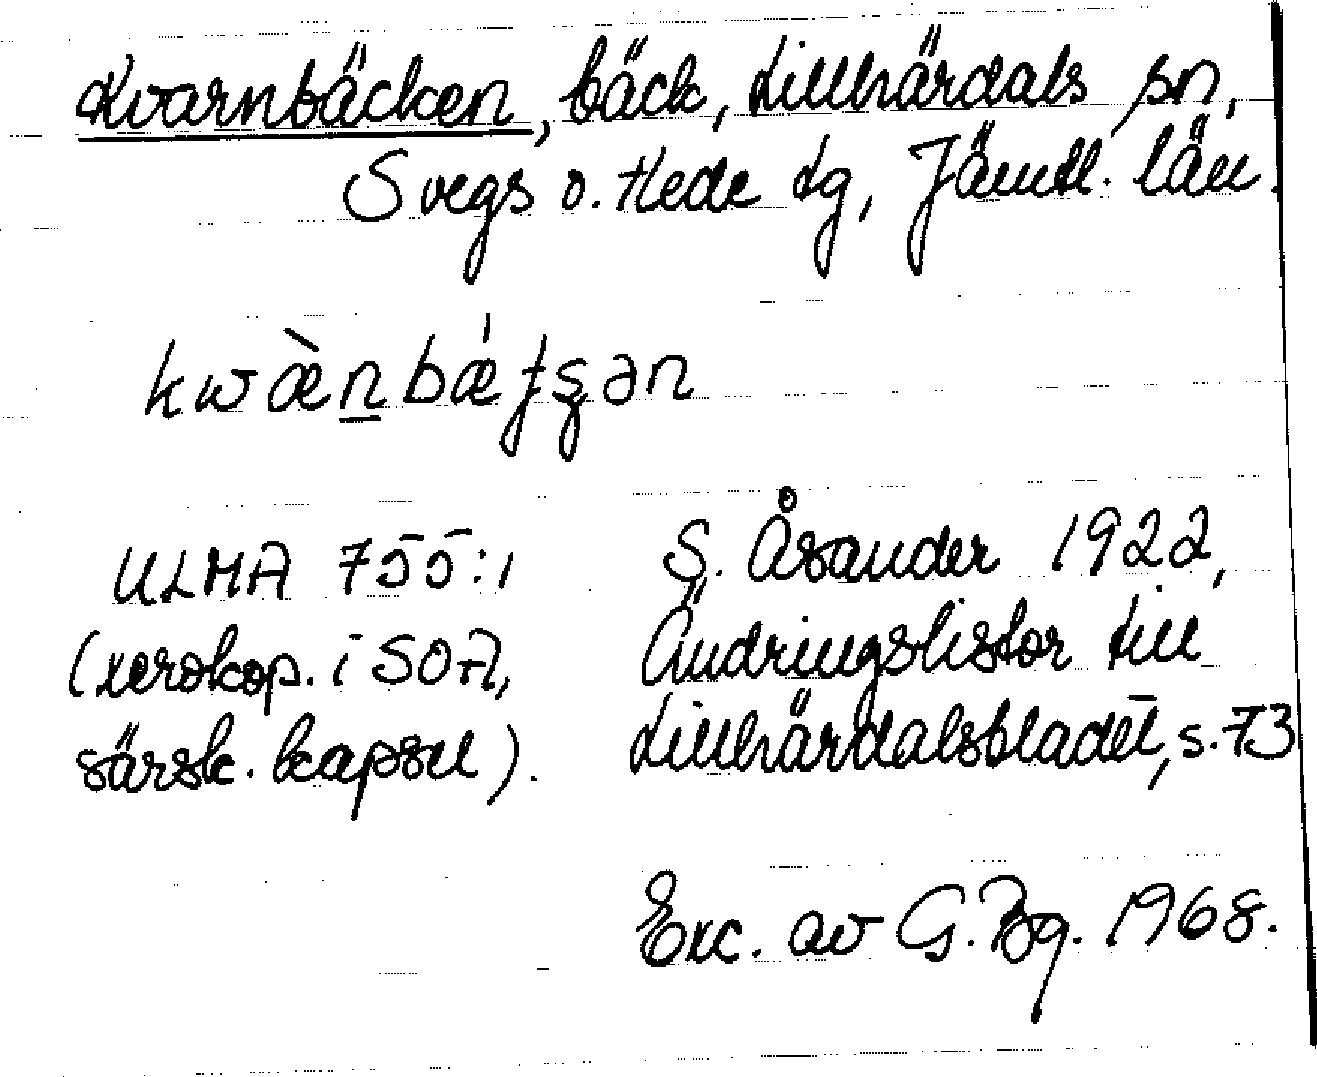 Kvarnbäcken, bäck, Lillhärdals sn,
Svegs o. Hede tg, Jämtl. län.
kwæ̀n̲bǽʈʂən
ULMA 755:1
(xerokop. i SOA,
särsk. kapsel).
S. Åsander 1922,
Ändringslistor till
Lillhärdalsbladet, s. 73
Exc. av G. Bg. 1968.